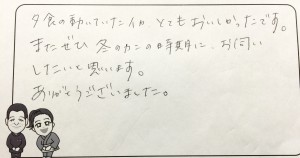 夕食の動いていたイカ とてもおいしかったです。
またぜひ 冬のカニの時期に、お伺い
したいと思います。
ありがとうございました。